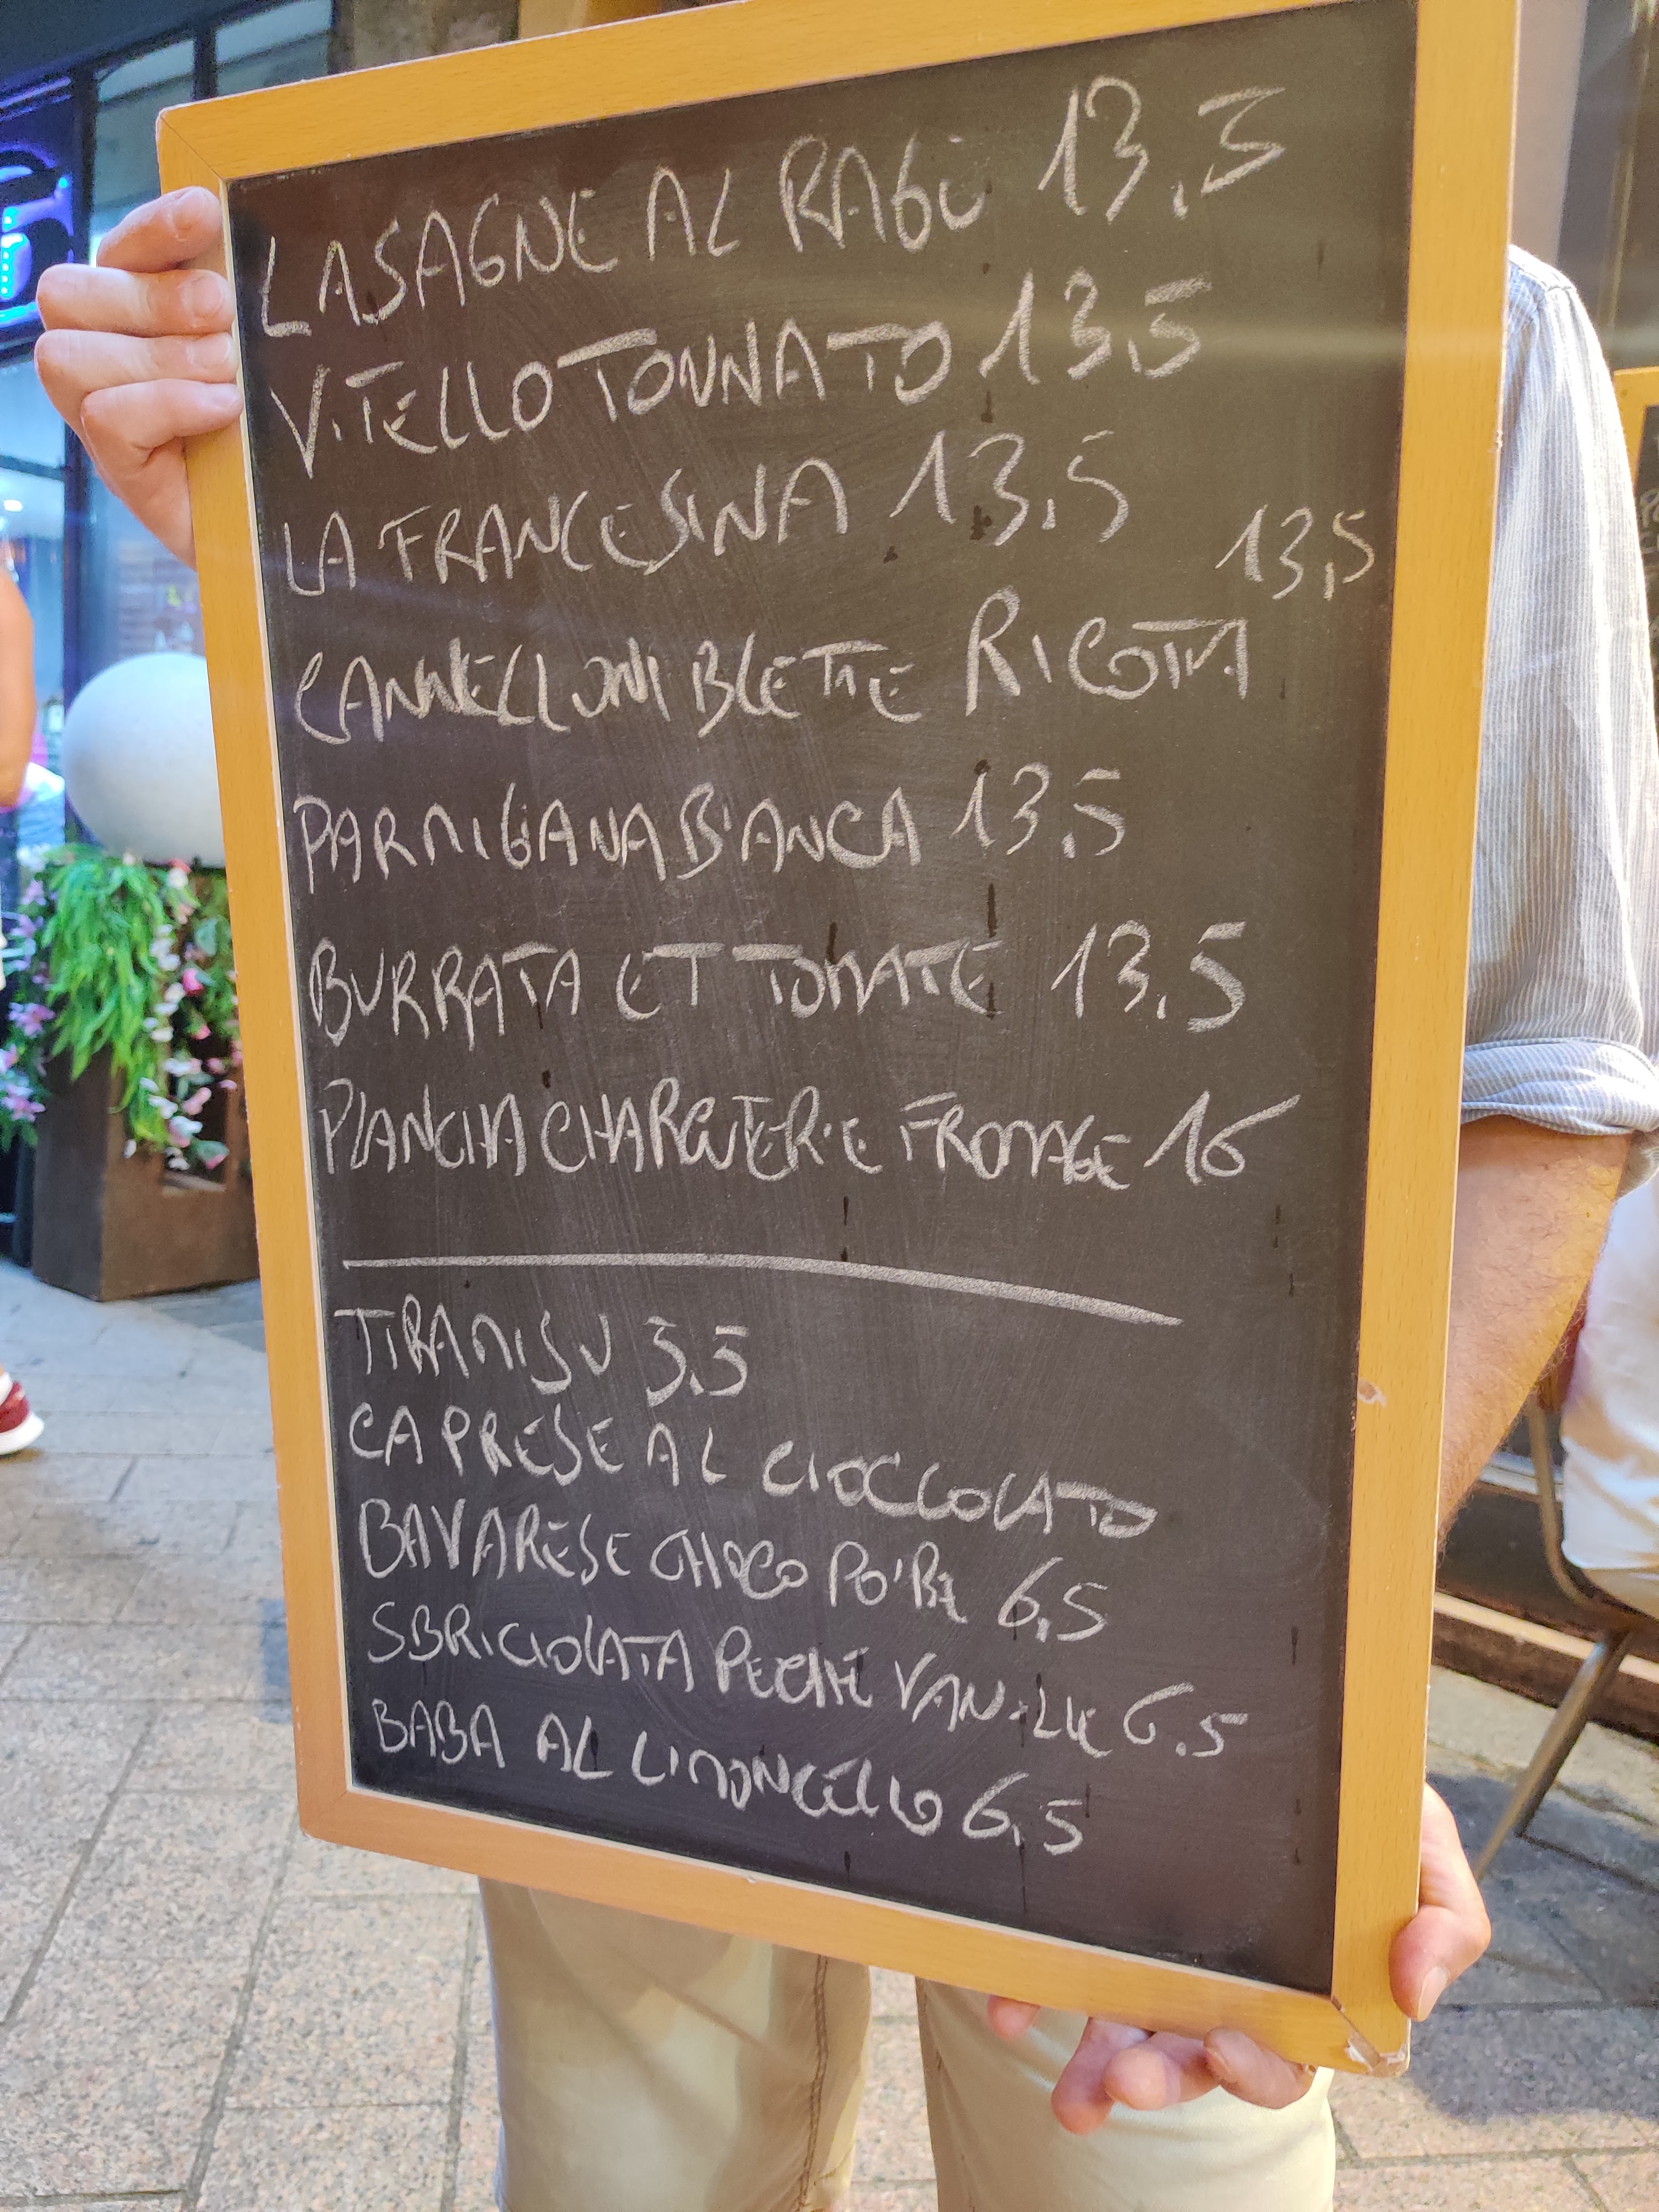 LASAGNE AL RAGÙ 13,5
VITELLO TONNATO 13,5
LA FRANCESINA 13,5
13,5
CANNELLONI BLETTE RICOTTA
PARMIGANA BIANCA 13,5
BURRATA ET TOMATE 13,5
PLANCHA CHARCUTERIE FROMAGE 16
TIRAMISU 5.5
CAPRESE AL CIOCCOLATO
BAVARESE CHOCO POIRE 6,5
SBRICIOLATA PECHE VANILLE 6.5
BABA AL LIMONCELLO 6,5